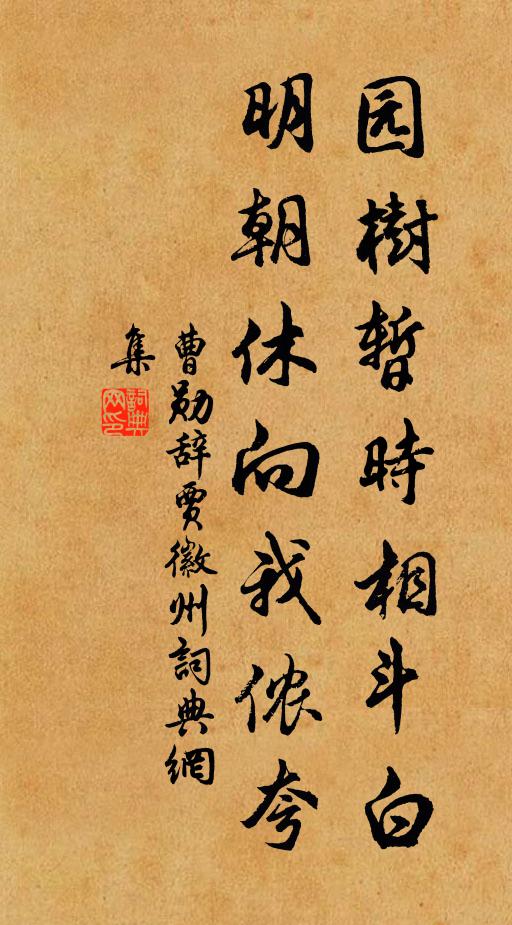 园樹暫時相斗白
明朝休向我侬夸
曹勋辞贾徽州詞典網
集
詞典
网印